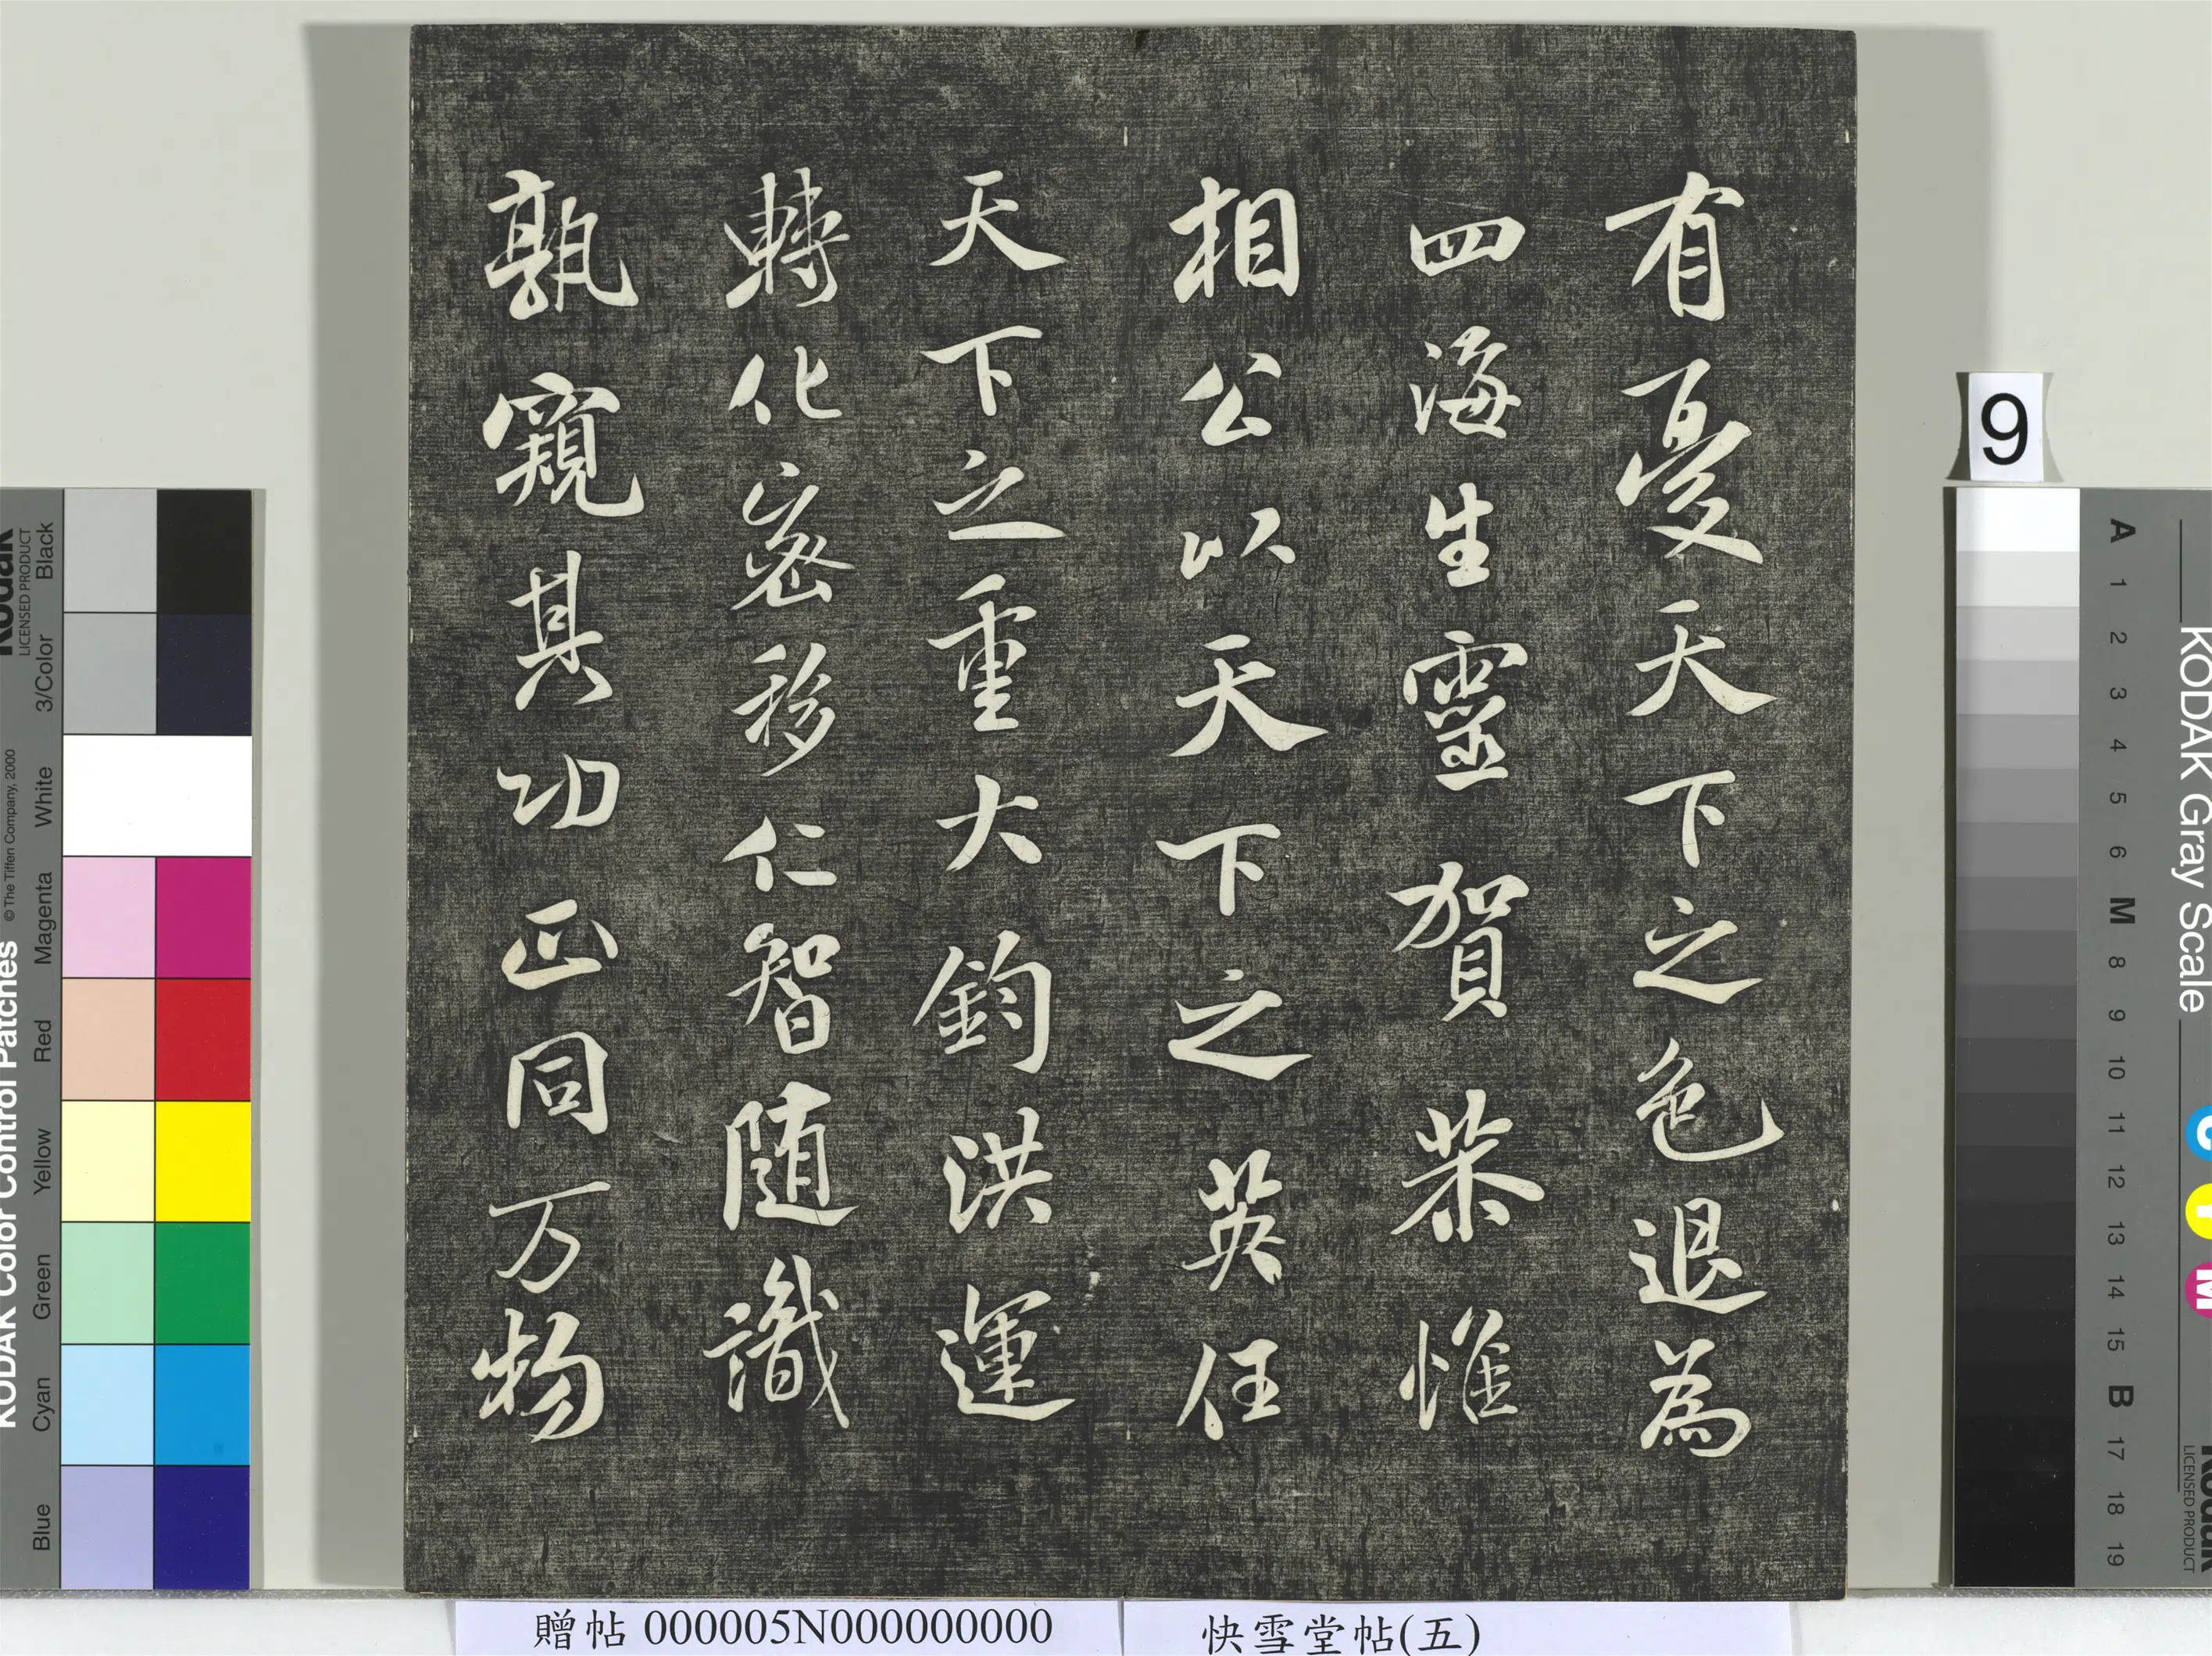 有憂天下之色退為
四海生靈賀恭惟
相公以天下之英任
天下之重大鈞洪運
轉化密移仁智随識
孰窺其功正同万物
贈帖 000005N000000000
快雪堂帖(五)
9
KODAK Color Control Patches
© The Tiffen Company, 2000
Kodak
LICENSED PRODUCT
Black
3/Color
White
Magenta
Red
Yellow
Green
Cyan
Blue
KODAK Gray Scale
A 1 2 3 4 5 6 M 8 9 10 11 12 13 14 15 B 17 18 19
C Y M
Kodak
LICENSED PRODUCT